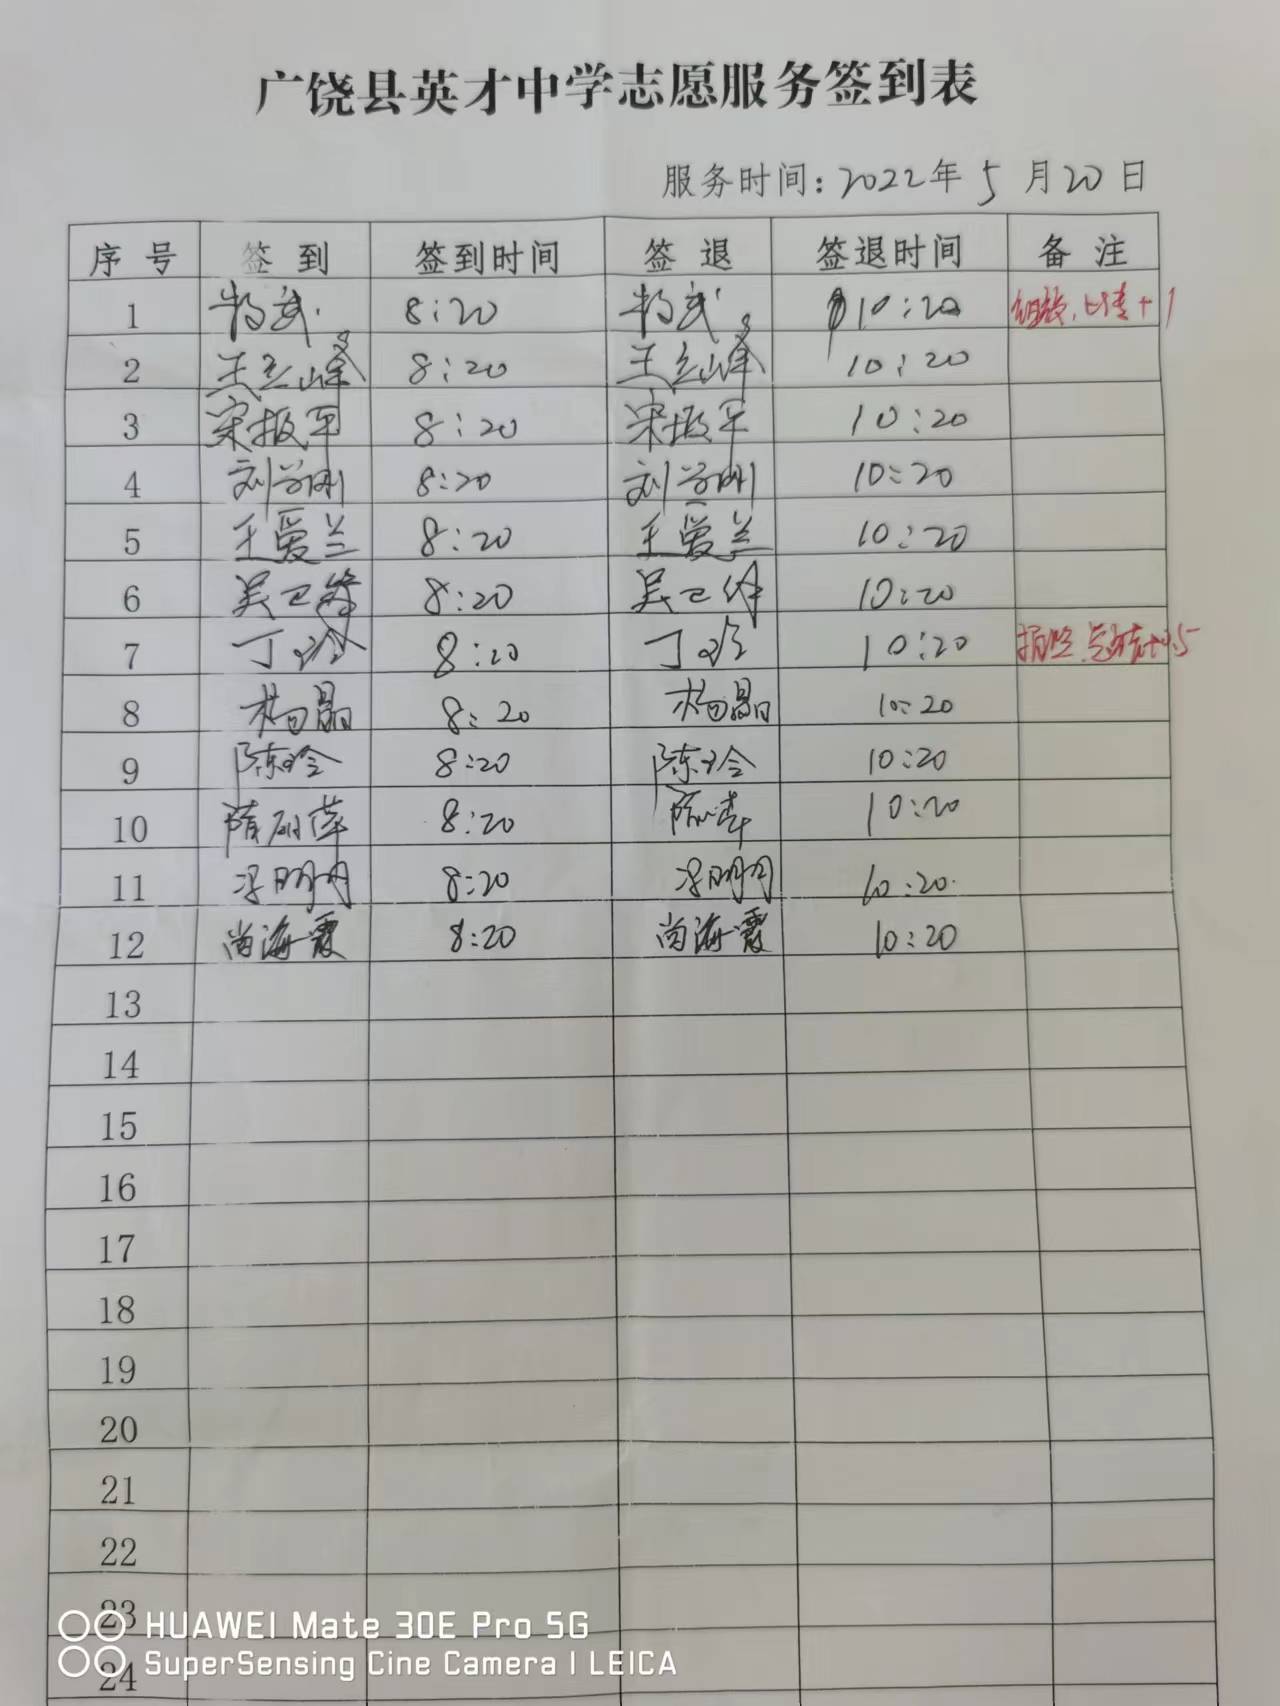 广饶县英才中学志愿服务签到表
服务时间：2022年5月20日
序号 签到 签到时间 签退 签退时间 备注
1 8:20 10:20 +1
2 王立峰 8:20 王立峰 10:20
3 宋振军 8:20 宋振军 10:20
4 刘学刚 8:20 刘学刚 10:20
5 王爱兰 8:20 王爱兰 10:20
6 吴卫 8:20 吴卫 10:20
7 丁玲 8:20 丁玲 10:20
8 杨晶 8:20 杨晶 10:20
9 陈玲 8:20 陈玲 10:20
10 隋 萍 8:20 10:20
11 冯明月 8:20 冯明月 10:20
12 尚海霞 8:20 尚海霞 10:20
13
14
15
16
17
18
19
20
21
22
23
24
HUAWEI Mate 30E Pro 5G
SuperSensing Cine Camera | LEICA